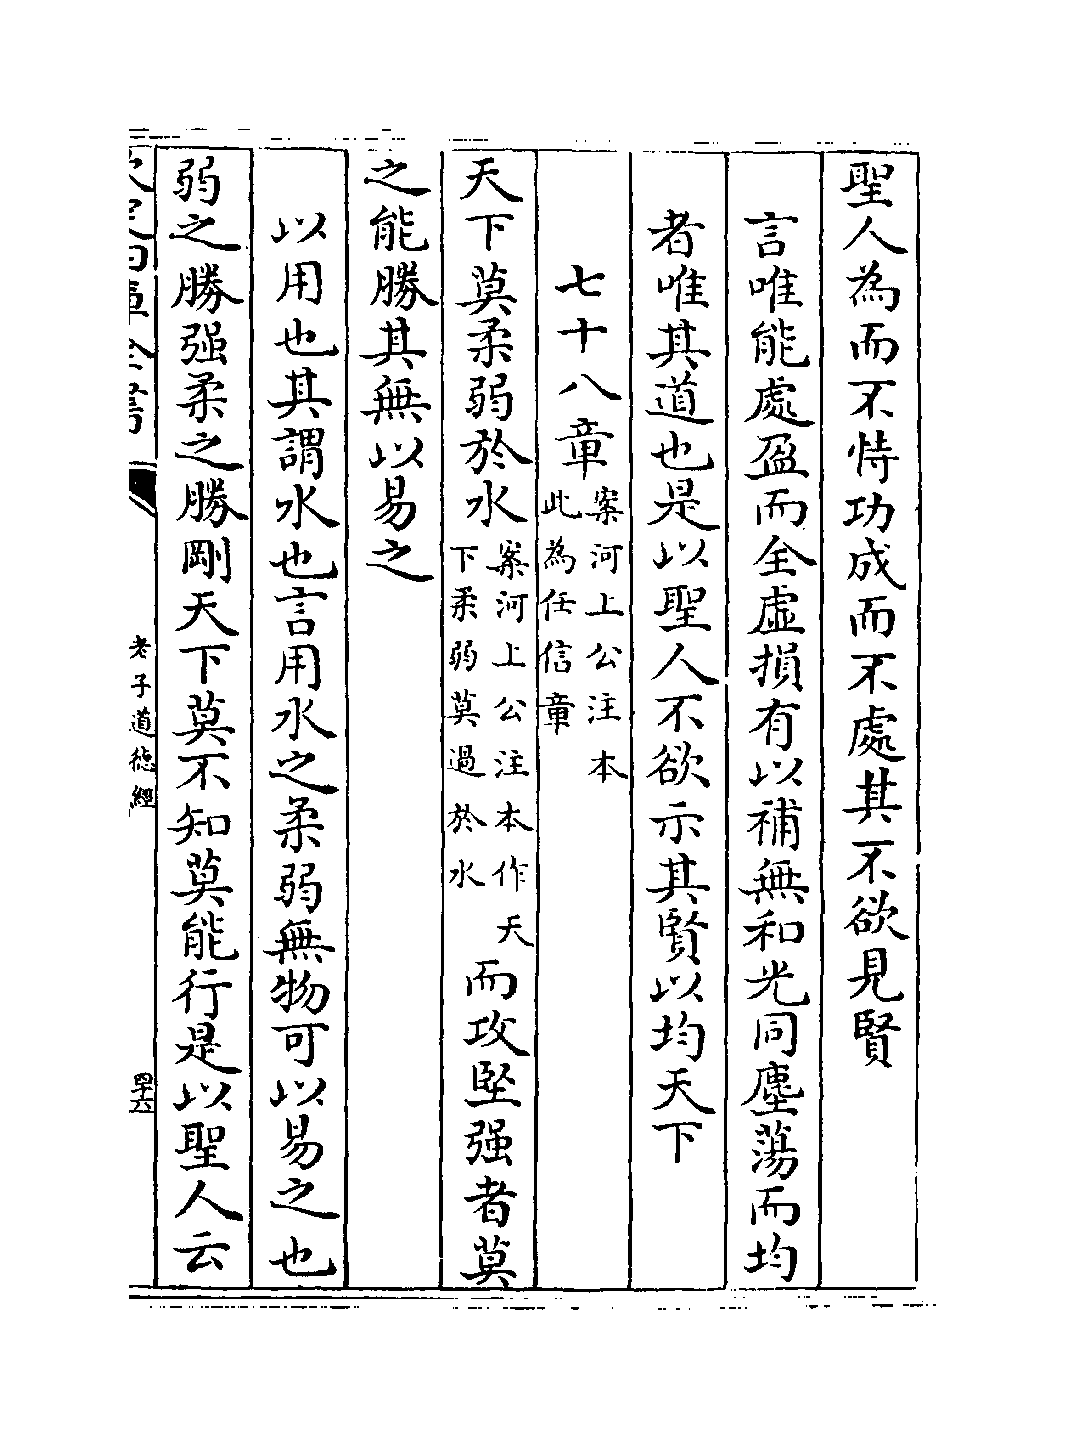 聖人為而不恃功成而不處其不欲見賢
言唯能處盈而全虚損有以補無和光同塵蕩而均
者唯其道也是以聖人不欲示其賢以均天下
七十八章案河上公注本此為任信章
天下莫柔弱於水案河上公注本作天下柔弱莫過於水而攻堅强者莫
之能勝其無以易之
以用也其謂水也言用水之柔弱無物可以易之也
弱之勝强柔之勝剛天下莫不知莫能行是以聖人云
欽定四庫全書
老子道德經
四十六